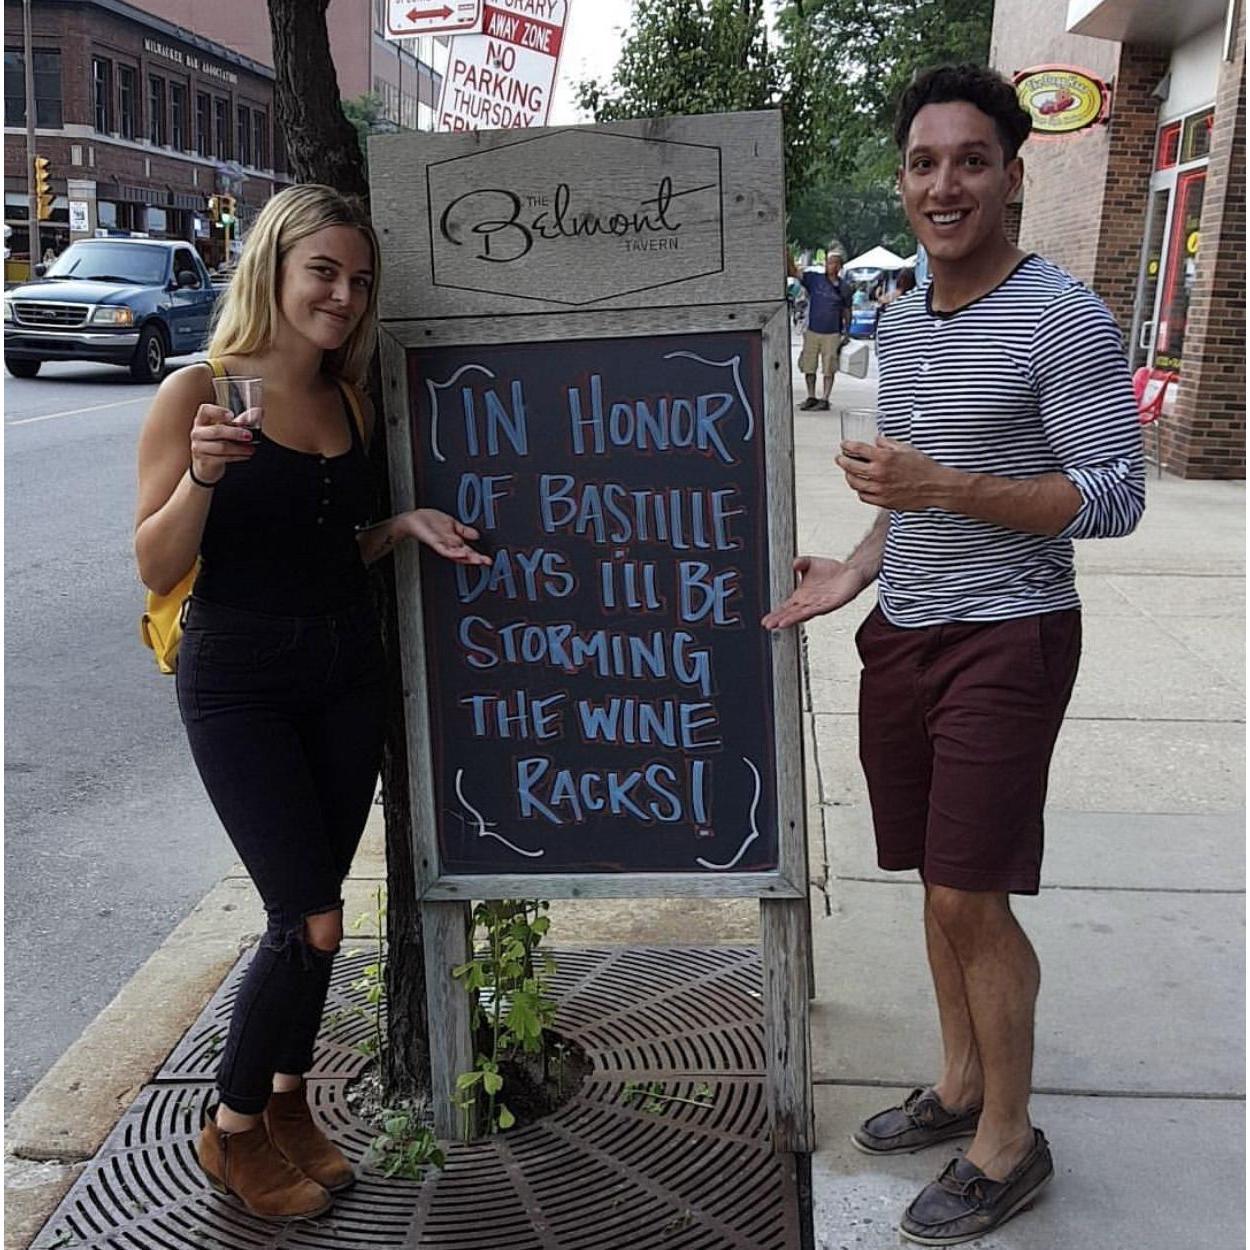 PORARY
AWAY ZONE
NO
PARKING
THURSDAY
5PM
MILWAUKEE BAR ASSOCIATION
THE
Belmont
TAVERN
IN HONOR
OF BASTILLE
DAYS I'LL BE
STORMING
THE WINE
RACKS!